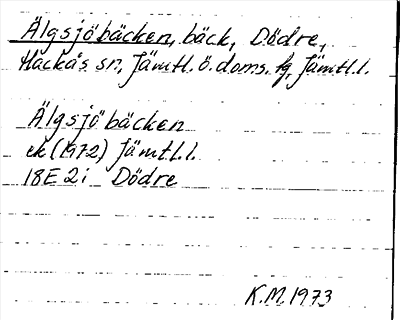 Älgsjöbäcken, bäck, Dödre,
Hackås sn, Jämtl. ö. doms. tg, Jämtl. l.
Älgsjöbäcken
ek (1972) Jämtl. l.
18E 2i Dödre
K.M. 1973